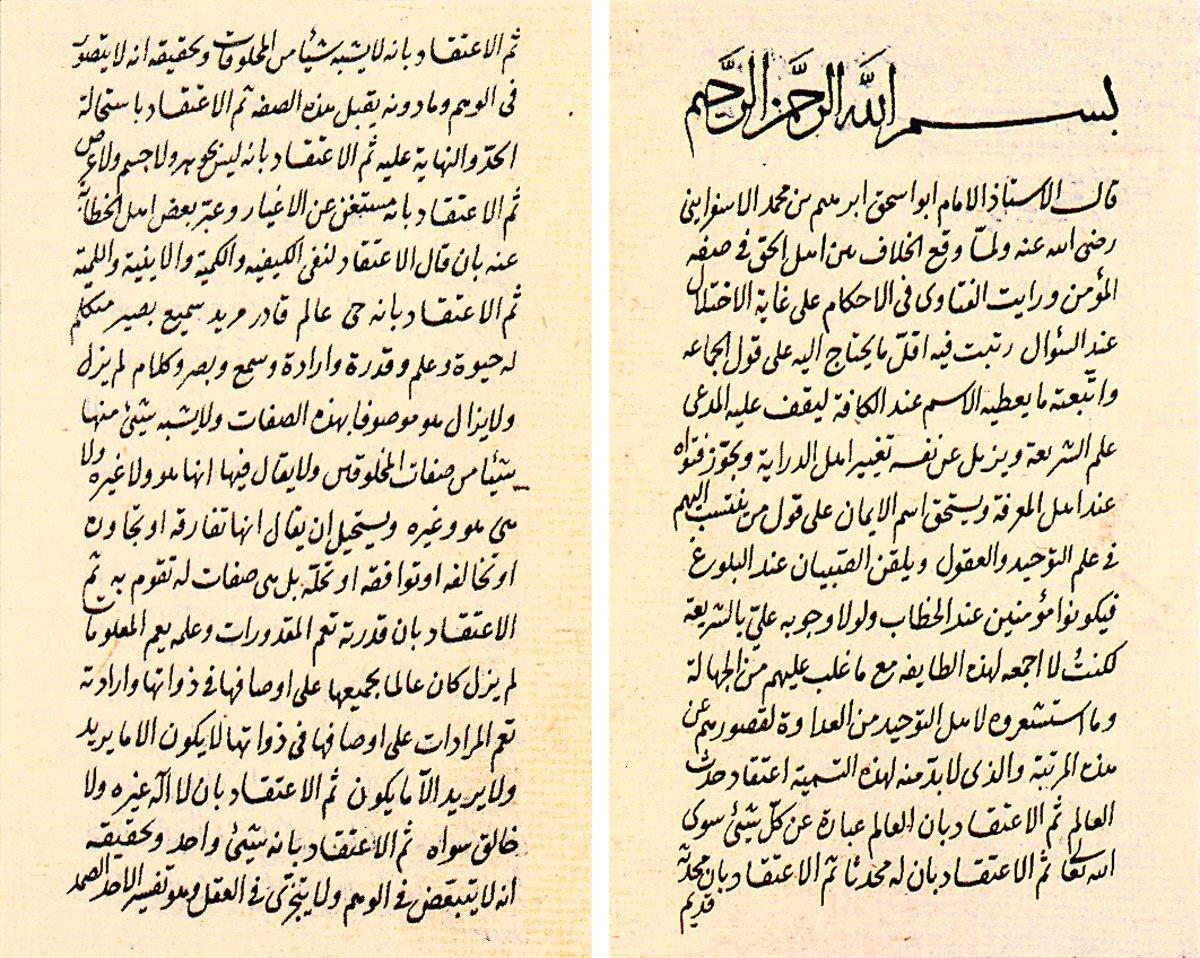 بسم الله الرحمن الرحيم
قال الاستاذ الامام ابو اسحق ابرهيم بن محمد الاسفرايني
رضى الله عنه ولمّا وقع الخلاف بين اهل الحق فى صفة
المؤمن ورايت الفتاوى فى الاحكام على غاية الاختلال
عند السؤال رتبت فيه اقلّ ما يحتاج اليه على قول الجماعه
واتّبعته ما يعطيه الاسم عند الكافة ليقف عليه المدعى
علم الشريعة ويزيل عن نفسه تغيير اهل الدراية ويجوّز فتواه
عند اهل المعرفة ويستحق اسم الايمان على قول من ينتسب اليهم
فى علم التوحيد والعقول ويلقن الصبيان عند البلوغ
فيكونوا مؤمنين عند الخطاب ولولا وجوبه علىّ بالشريعة
لكنتُ لا اجمعه لهذه الطايفه مع ما غلب عليهم من الجهالة
وما استشعروه لاهل التوحيد من العداوة لقصورهم عن
هذه المرتبة والذى لا بدّ منه لهذه التسمية اعتقاد حدث
العالم ثم الاعتقاد بان العالم عبارة عن كلّ شيئ سوى
الله تعالى ثم الاعتقاد بان له محدثا ثم الاعتقاد بان محدثه
قديم
ثم الاعتقاد بانه لا يشبه شيئا من المخلوقات وحقيقه انه لا يتصور
فى الوهم وما دونه يقبل هذه الصفه ثم الاعتقاد باستحالة
الحدّ والنهاية عليه ثم الاعتقاد بانه ليس بجوهر ولا جسم ولا عرض
ثم الاعتقاد بانه مستغن عن الاغيار وعبّر بعض اهل الخطابة
عنه بان قال الاعتقاد لنفى الكيفيه والكمية والاينية واللمية
ثم الاعتقاد بانه حى عالم قادر مريد سميع بصير متكلم
له حيوة وعلم وقدرة وارادة وسمع وبصر وكلام لم يزل
ولا يزال هو موصوفا بهذه الصفات ولا يشبه شيئ منها
شيئا من صفات المخلوقين ولا يقال فيها انها هو ولا غيره ولا
هى هو وغيره ويستحيل ان يقال انها تفارقه او تجاوره
او تخالفه او توافقه او تحلّه بل هى صفات له تقوم به ثم
الاعتقاد بان قدرته تعم المقدورات وعلمه يعم المعلومات
لم يزل كان عالما بجميعها على اوصافها فى ذواتها وارادته
تعم المرادات على اوصافها فى ذواتها لا يكون الا ما يريد
ولا يريد الّا ما يكون ثم الاعتقاد بان لا اله غيره ولا
خالق سواه ثم الاعتقاد بانه شيئ واحد وحقيقه
انه لا يتبعض فى الوهم ولا يتجزى فى العقل وهو تفسير الاحد الصمد